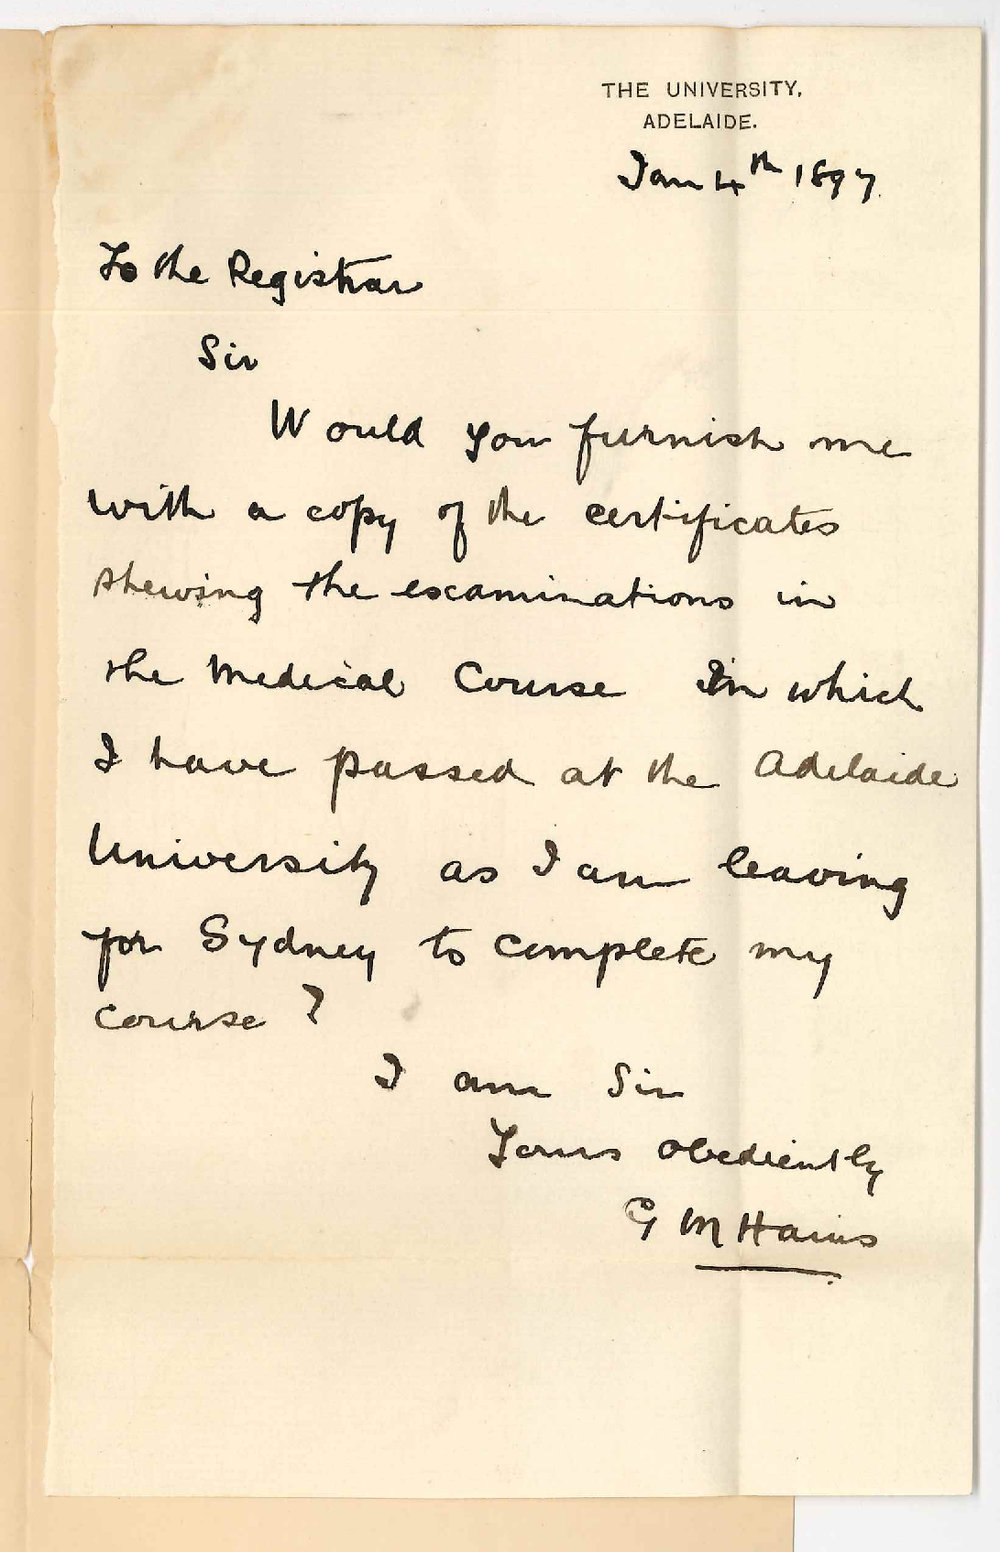 THE UNIVERSITY,
ADELAIDE.
Jan 4th 1897
To the Registrar
Sir
Would you furnish me
with a copy of the certificates
shewing the examinations in
the Medical Course in which
I have passed at the Adelaide
University as I am leaving
for Sydney to complete my
course?
I am Sir
Yours obediently
G M Hains